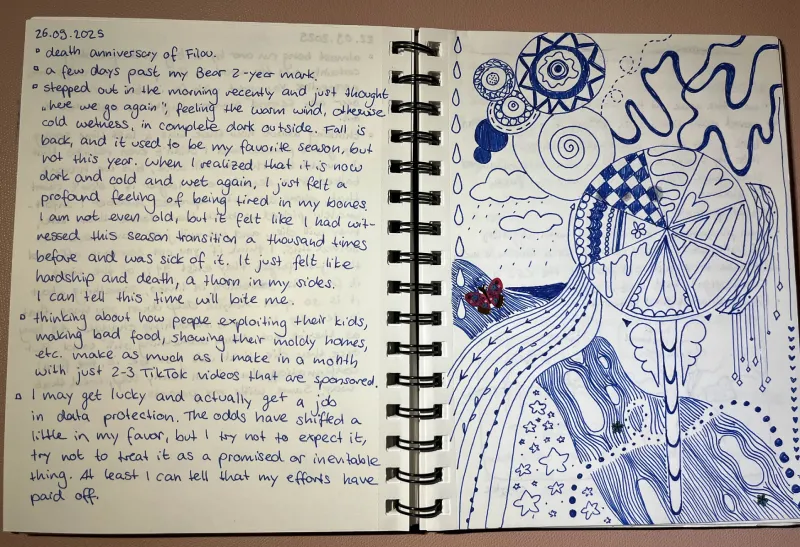 26.09.2025
▫ death anniversary of Filou.
▫ a few days past my Bear 2-year mark.
▫ stepped out in the morning recently and just thought
„here we go again", feeling the warm wind, otherwise
cold wetness, in complete dark outside. Fall is
back, and it used to be my favorite season, but
not this year. When I realized that it is now
dark and cold and wet again, I just felt a
profound feeling of being tired in my bones.
I am not even old, but it felt like I had wit-
nessed this season transition a thousand times
before and was sick of it. It just felt like
hardship and death, a thorn in my sides.
I can tell this time will bite me.
▫ thinking about how people exploiting their kids,
making bad food, showing their moldy homes,
etc. make as much as I make in a month
with just 2-3 TikTok videos that are sponsored.
▫ I may get lucky and actually get a job
in data protection. The odds have shifted a
little in my favor, but I try not to expect it,
try not to treat it as a promised or inevitable
thing. At least I can tell that my efforts have
paid off.